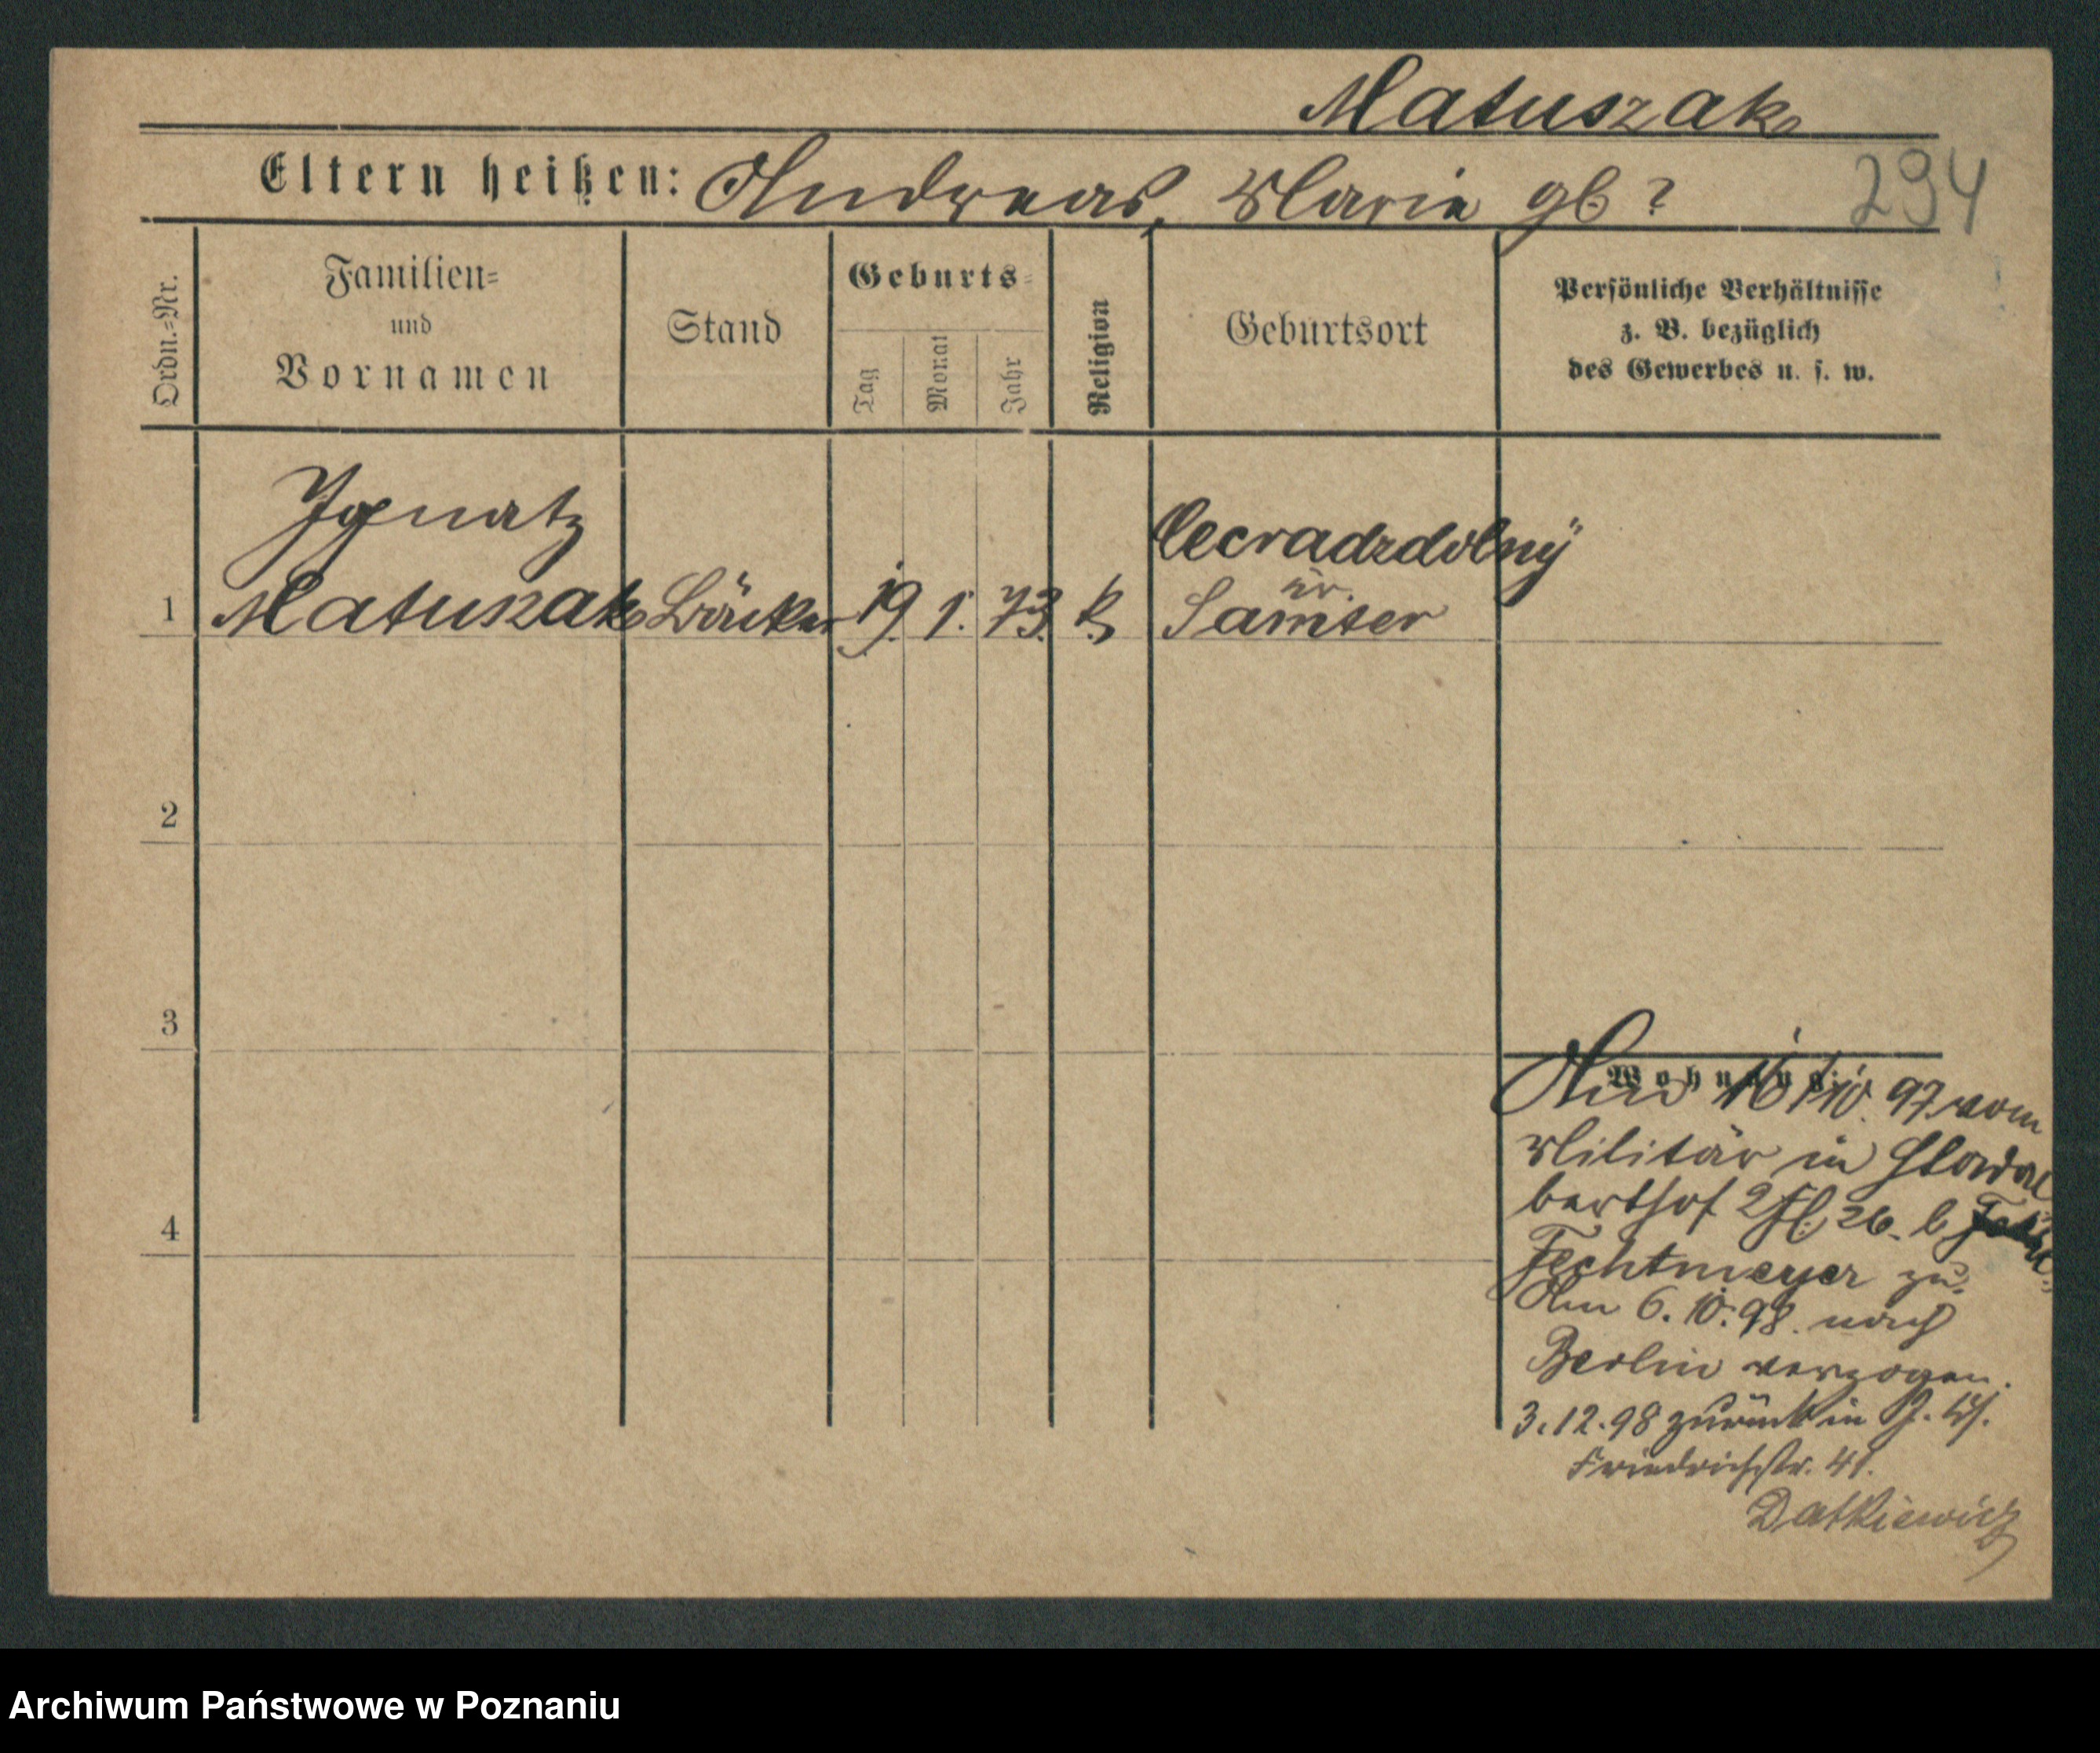 Matuszak
Eltern heißen: Andreas, Marie gb ?
294
Ordn.-Nr.
Familien-
und
Vornamen
Stand
Geburts-
Tag
Monat
Jahr
Religion
Geburtsort
Persönliche Verhältnisse
z. B. bezüglich
des Gewerbes u. s. w.
Ignatz
1 Matuszak Bäcker 19. 1. 73. k
Kr.
Samter
2
3
4
Wohnung:
16/10. 97. vom
Militär in
26. b
Fechtmeyer zu.
Am 6. 10. 98. nach
Berlin verzogen.
3. 12. 98 zurück in
Friedrichstr. 41.
Datkiewicz
Archiwum Państwowe w Poznaniu